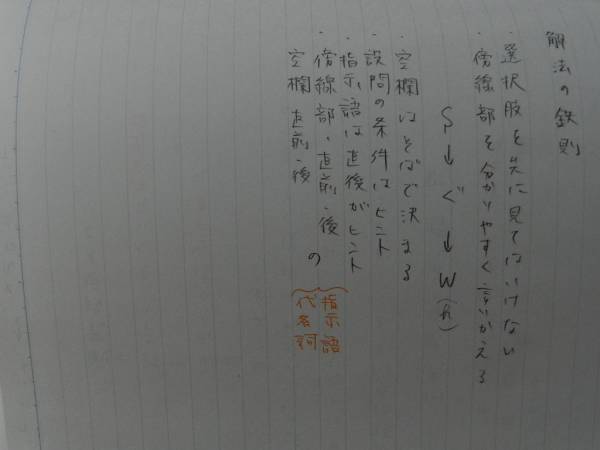 解法の鉄則
・選択肢を先に見てはいけない
・傍線部を分かりやすく言いかえる
S→ぐ→W(h)
・空欄はそばで決まる
・設問の条件はヒント
・指示語は直後がヒント
・傍線部、直前・後
空欄 直前・後
の
指示語
代名詞